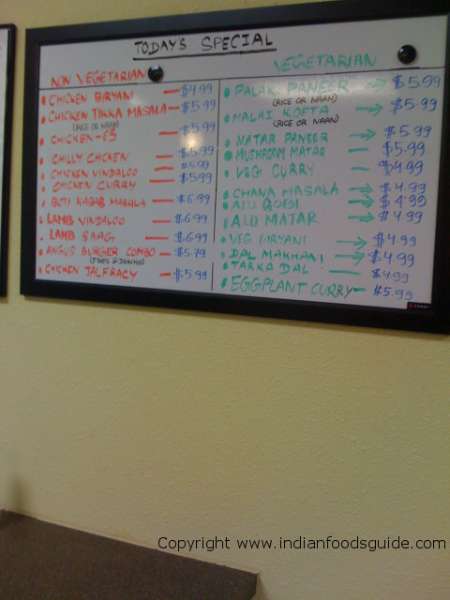 TODAY'S SPECIAL
NON VEGETARIAN
CHICKEN BIRYANI — $4.99
CHICKEN TIKKA MASALA — $5.99
(RICE OR NAAN)
CHICKEN-65 — $5.99
CHILLY CHICKEN — $5.99
CHICKEN VINDALOO — $5.99
CHICKEN CURRY — $5.99
BOTI KABAB MASALA — $6.99
LAMB VINDALOO — $6.99
LAMB SAAG — $6.99
ANGUS BURGER COMBO — $5.79
CHICKEN JALFRACY — $5.99
VEGETARIAN
PALAK PANEER → $5.99
(RICE OR NAAN)
MALAI KOFTA → $5.99
(RICE OR NAAN)
MATAR PANEER → $5.99
MUSHROOM MATAR — $5.99
VEG CURRY — $4.99
CHANA MASALA → $4.99
ALU GOBI → $4.99
ALU MATAR → $4.99
VEG BIRYANI → $4.99
DAL MAKHANI → $4.99
TARKA DAL — $4.99
EGGPLANT CURRY — $5.99
Copyright www.indianfoodsguide.com